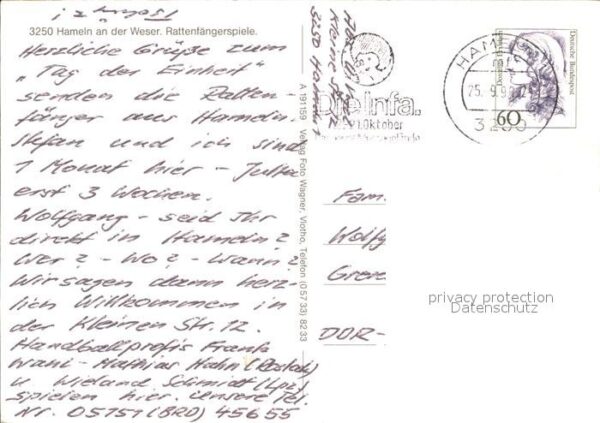 3250 Hameln an der Weser. Rattenfängerspiele.
Herzliche Grüße zum
"Tag der Einheit"
senden die Ratten-
fänger aus Hameln.
Stefan und ich sind
1 Monat hier - Jutta
erst 3 Wochen.
Wolfgang - seid Ihr
direkt in Hameln?
Wer? - Wo? - Wann?
Wir sagen dann herz-
lich Willkommen in
der Kleinen Str. 12.
Handballprofis Frank
Wahl - Mathias Hahn (Rostock)
u. Wieland Schmidt (Lpz)
spielen hier. Unsere Tel.
Nr. 05151 (BRD) 45655
A 191159 Verlag Foto Wagner, Vlotho, Telefon (05733) 8233
Kleine Str. 12
3250 Hameln 1
Die Infa.
Oktober
HAMELN
25.9.9
3250
Deutsche Bundespost
60
Fam.
Wolfg
Greve
DDR-
privacy protection
Datenschutz